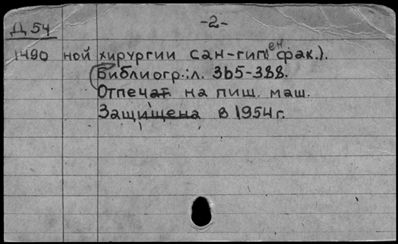 Д 54
-2-
1490 ной хирургии сан-гиген фак.).
Библиогр.: л. 365-388.
Отпечат на пиш. маш.
Защищена в 1954 г.